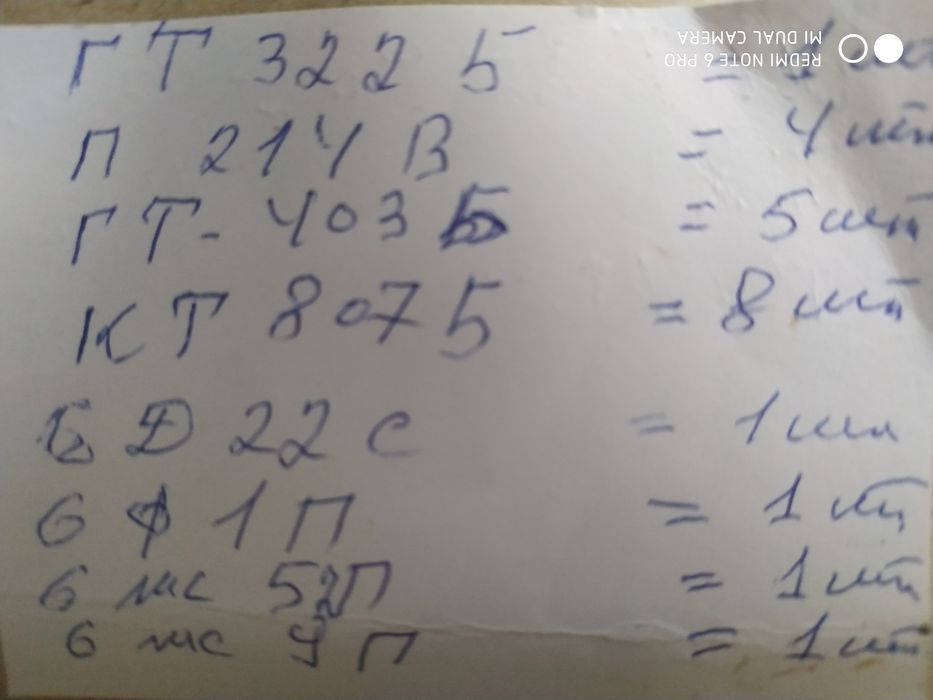 ГТ 322 Б = 1 шт
П 214 В = 4 шт
ГТ-403 Б = 5 шт
КТ 807 Б = 8 шт
БД 22 С = 1 шт
6 Ф 1 П = 1 шт
6 ж 52П = 1 шт
6 ж 9 П = 1 шт
REDMI NOTE 6 PRO
MI DUAL CAMERA